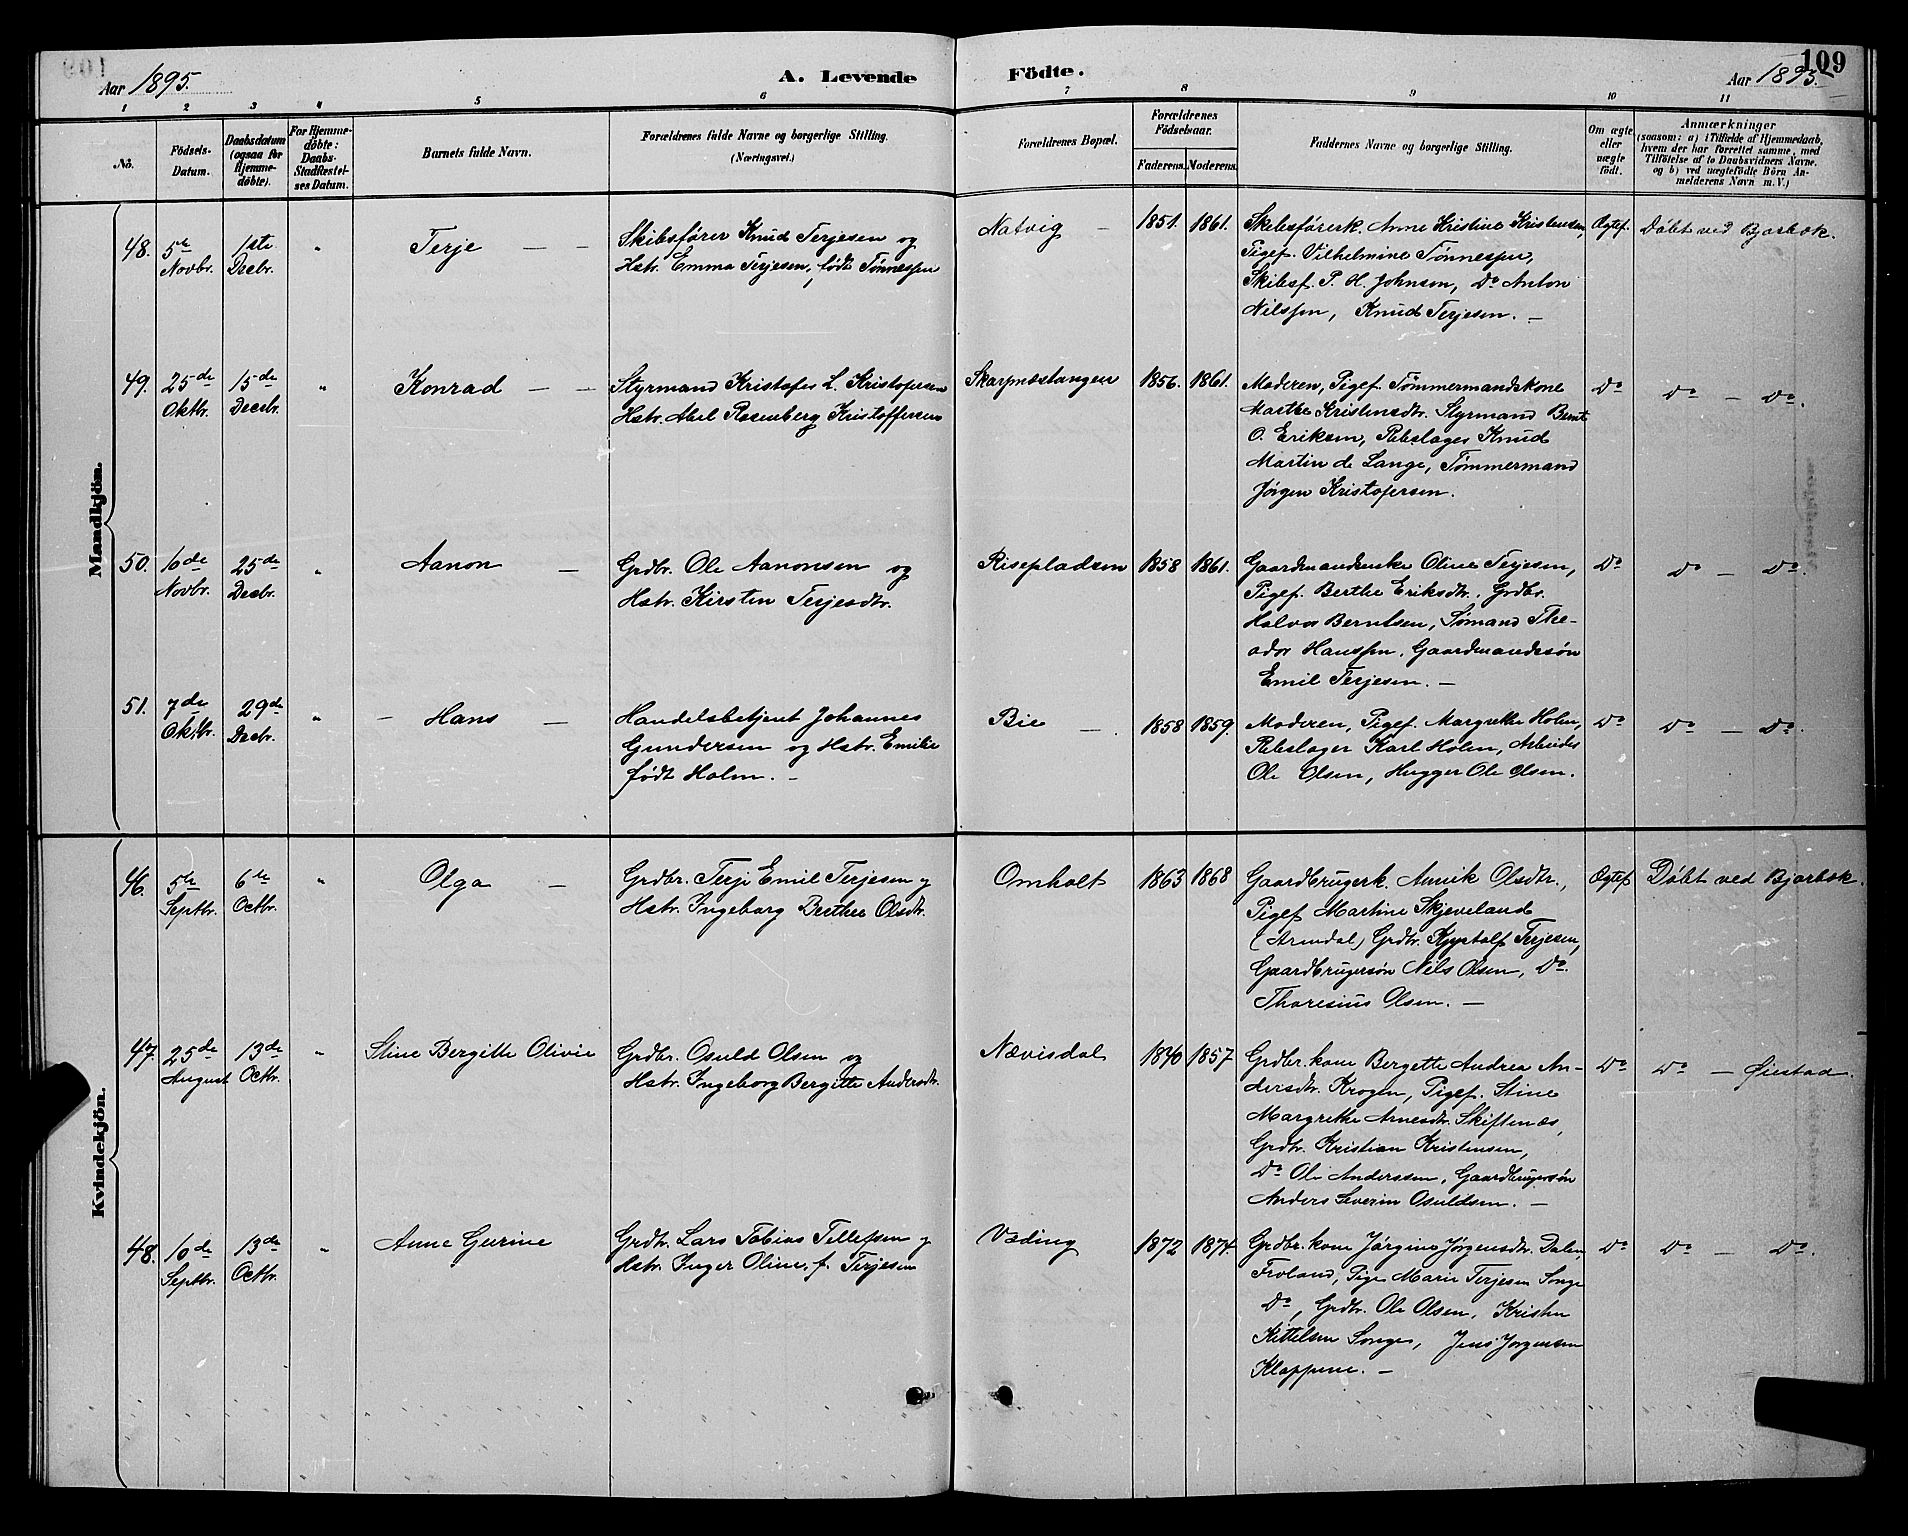 109
Aar 1895.
A. Levende Födte.
Aar 1895.
1 2 3 4 5 6 7 8 9 10 11
No.
Födsels-Datum.
Daabsdatum (ogsaa for Hjemmedöbte).
For Hjemmedöbte: Daabs-Stadfæstelses Datum.
Barnets fulde Navn.
Forældrenes fulde Navne og borgerlige Stilling. (Næringsvei.)
Forældrenes Bopæl.
Forældrenes Födselsaar.
Faderens. Moderens.
Faddernes Navne og borgerlige Stilling.
Om ægte eller uægte födt.
Anmærkninger
(saasom: a) i Tilfælde af Hjemmedaab, hvem der har forrettet samme, med Tilföielse af to Daabsvidners Navne, og b) ved uægtefödte Börn Anmelderens Navn m. V.)
Mandkjön.
48. 5te Novbr. 1ste Decbr. " Terje — —
Skibsfører Knud Terjesen og
Hstr. Emma Terjesen, født Tønnessen
Natvig — 1851. 1861.
Skibsførerk. Anne Kristine Kristensen,
Pigef. Vilhelmine Tønnessen,
Skibsf. P. H. Johnsen, Do Anton
Nilssen, Knud Terjesen. —
Ægtef. Døbt ved Bjorbæk.
49. 25de Oktbr. 15de Decbr. " Konrad — —
Styrmand Kristofer L. Kristofersen
Hstr. Abel Rosenberg Kristoffersen
Skarpnæstangen 1856. 1861.
Moderen, Pigef. Tømmermandskone
Marthe Kristensdtr. Styrmand Bernt
O. Eriksen, Rebslager Knud
Martin de Lange, Tømmermand
Jørgen Kristofersen.
Do Do — Do.
50. 10de Novbr. 25de Decbr. " Aanon —
Grdbr. Ole Aanonsen og
Hstr. Kirsten Terjesdtr.
Risepladsen 1858 1861.
Gaardmandenke Oline Terjesen,
Pigef. Berthe Eriksdtr. Grdbr.
Halvor Berntsen, Sømand The-
odor Hanssen, Gaardmandssøn
Emil Terjesen. —
Do Do — Do.
51. 7de Oktbr. 29de Decbr. " — Hans —
Handelsbetjent Johannes
Gundersen og Hstr. Emilie
født Holm. —
Bie — 1858 1859.
Moderen, Pigef. Margrethe Holm,
Rebslager Karl Holm, Arbeider
Ole Olsen, Hugger Ole Olsen.
Do Do — Do.
Kvindekjön.
46. 5te Septbr. 6te Octbr. " Olga —
Grdbr. Terje Emil Terjesen og
Hstr. Ingeborg Berthee Olsdtr.
Omholt 1863 1868
Gaardbrugerk. Annik Olsdtr.,
Pigef Martine Skjeveland
(Arendal) Grdbr. Terjesen,
Gaardbrugersøn Nils Olsen, Do.
Thoresius Olsen. —
Ægtef Døbt ved Bjorbæk.
47. 25de August 13de Octbr. " Stine Bergitte Olivie
Grdbr. Osuld Olsen og
Hstr. Ingeborg Bergitte Andersdtr.
Nævisdal 1840 1857
Grdbr.kone Bergette Andrea An-
dersdtr. Krogen, Pigef. Stine
Margrethe Arnesdtr. Skiftenæs,
Grdbr. Kristian Kristensen,
Do Ole Anderssen, Gaardbrugersøn
Anders Severin Osuldsen. —
Do Do — Øiestad.
48. 10de Septbr. 13de Octbr. " Anne Gurine
Grdbr. Lars Tobias Tellefsen og
Hstr. Inger Oline, f. Terjesen
Væding 1872 1874.
Grdbr.kone Jørgine Jørgensdtr. Dalen,
Froland, Pige Marie Terjesen Songe
Do, Grdbr. Ole Olsen, Kristen
Kittelsen Songe, Jens Jørgensen
Klappene. —
Do Do — Do.